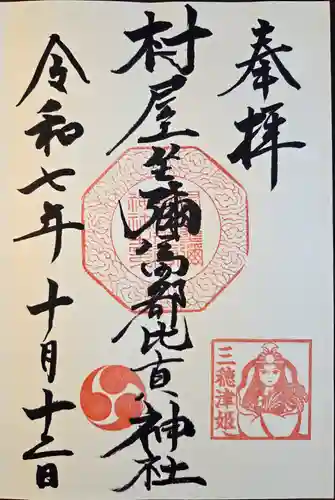 奉拝
村屋坐彌冨都比賣神社
令和七年十月十三日
三穂津姫